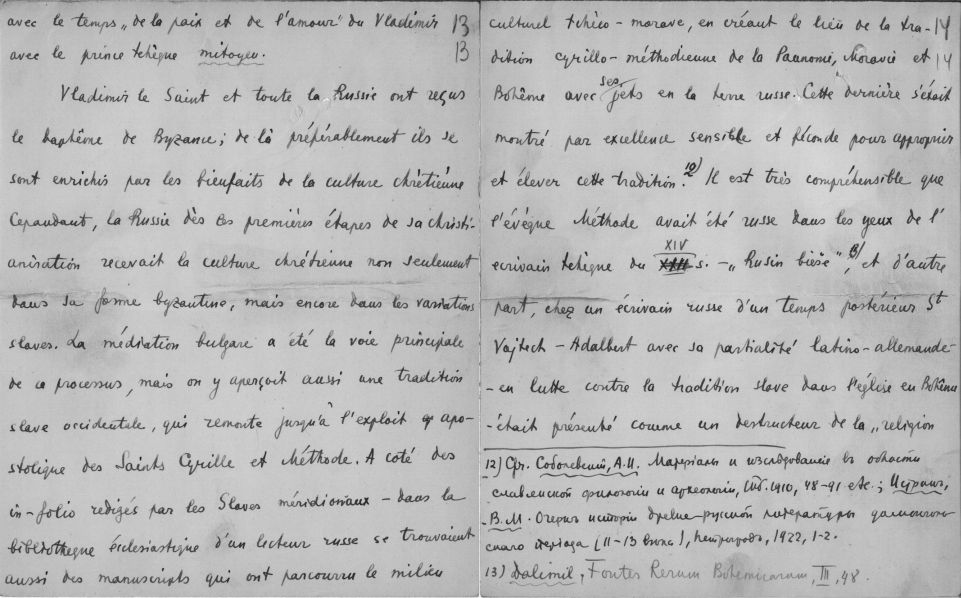 avec le temps „de la paix et de l'amour" du Vladimir 13
avec le prince tchèque mitoyen. 13
Vladimir le Saint et toute la Russie ont reçus
le baptême de Byzance; de là préférablement ils se
sont enrichis par les bienfaits de la culture chrétiène
Cepandant, la Russie dès les premières étapes de sa christi-
anisation recevait la culture chrétienne non seulement
dans sa forme byzantine, mais encore dans les variations
slaves. La médiation bulgare a été la voie principale
de ce processus, mais on y aperçoit aussi une tradition
slave occidentale, qui remonte jusqu'à l'exploit apo-
stolique des Saints Cyrille et Méthode. A coté des
in-folio redigés par les Slaves méridionaux – dans la
bibliothèque écclesiastique d'un lecteur russe se trouvaient
aussi des manuscripts qui ont parcourru le milieu
culturel tchéco-morave, en créant le lieu de la tra- 14
dition cyrillo-méthodienne de la Pannonie, Moravie et 14
Bohême avec ses jets en la terre russe. Cette dernière s'était
montré par excellence sensible et féconde pour approprier
et élever cette tradition. 12) Il est très compréhensible que
l'évêque Méthode avait été russe dans les yeux de l'
ecrivain tchèque du XIV s. – „Rusin bieše", 13) et d'autre
part, chez un écrivain russe d'un temps postérieur St
Vojtech – Adalbert avec sa partialité latino-allemande-
- en lutte contre la tradition slave dans l'église en Bohême
- était présenté comme un destructeur de la „religion
12) Срв. Соболевский, А.И. Материалы и изследования въ области
славянской филологии и археологии, Спб. 1910, 48-91 etc.; Истрин,
В.М. Очерк истории древне-русской литературы домосков-
скаго периода (11-13 века), Петроградъ, 1922, 1-2.
13) Dalimil, Fontes Rerum Bohemicarum, III, 48.